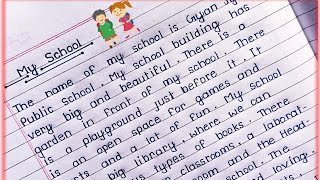 My School
The name of my school is Gyan
Public School. My school building has
very big and beautiful. There is a
garden in front of my school. There
is a playground just before it. It
is an open space for games and
and a lot of fun. My school
big library where we can
types of books. There
classrooms, a laborat-
room and the Head-
and loving.